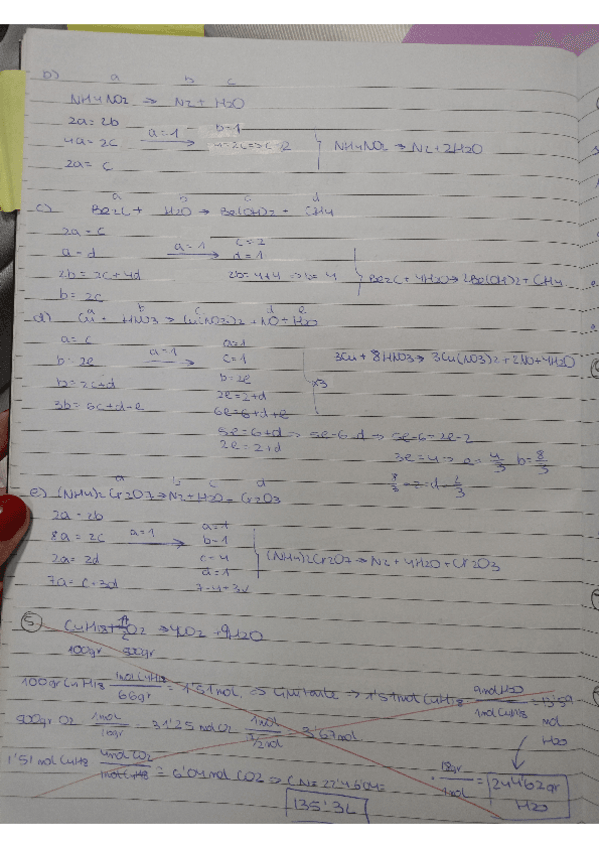 b) a b c
NH4NO2 → N2 + H2O
2a=2b
4a=2c a=1 → b=1
2a=c 4=2c=>c=2 NH4NO2 → N2+2H2O
c) a b c d
Be2C + H2O → Be(OH)2 + CH4
2a=c
a=d a=1 → c=2 d=1
2b=2c+4d 2b=4+4 => b=4 Be2C + 4H2O → 2Be(OH)2 + CH4
b=2c
a b c d e
d) Cu + HNO3 → Cu(NO3)2 + NO + H2O
a=c a=1
b=2e a=1 → c=1 3Cu + 8HNO3 → 3Cu(NO3)2 + 2NO + 4H2O
b=2c+d b=2e x3
3b=6c+d+e 2e=2+d
6e=6+d+e
5e=6+d → 5e-6=d → 5e-6=2e-2
2e=2+d 3e=4 → e=4/3 b=8/3
8/3-2=d 2/3
a b c d
e) (NH4)2Cr2O7 → N2 + H2O + Cr2O3
2a=2b
8a=2c a=1 → a=1 b=1
2a=2d c=4 (NH4)2Cr2O7 → N2 + 4H2O + Cr2O3
7a=c+3d d=1
7-4=3d
5.
100gr 500gr
100gr C4H18 1mol C4H18/66gr = 1'51mol => Limitante → 1'51mol C4H18 9mol H2O/1mol C4H18 = 13'59 mol H2O
500gr O2 1mol/16gr = 31'25 mol O2
1'51 mol C4H18 4mol CO2/1mol C4H8 = 6'04mol CO2 => CN=22'4·6'04=
135'3L
· 18gr/1mol = 244'62gr H2O